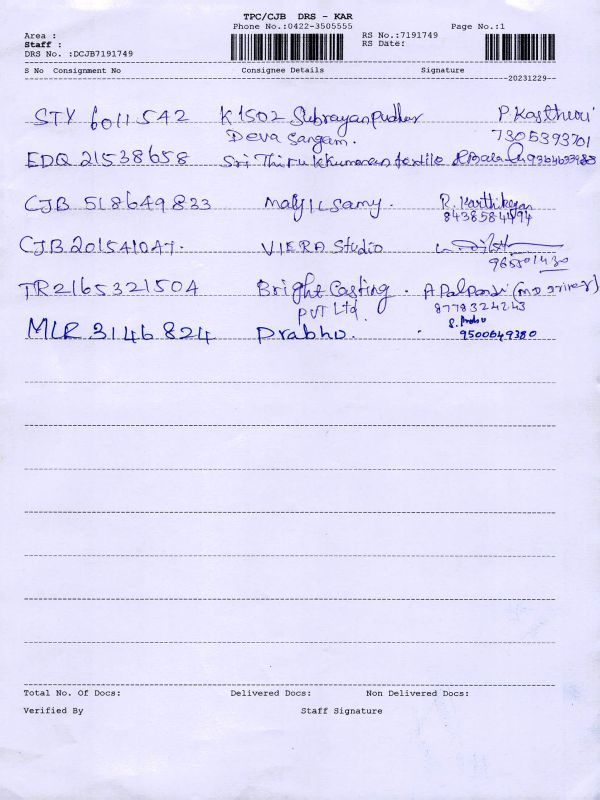 TPC/CJB DRS - KAR
Phone No.:0422-3505555 Page No.:1
Area : RS No.:7191749
Staff : RS Date:
DRS No. :DCJB7191749
S No Consignment No Consignee Details Signature
20231229--
STY 6011542 K1502 Subrayanpudhur P. Kasthuri
Deva Sangam. 7305393701
EDQ 21538658 Sri Thirukkumaran textile
CJB 518649833 R. Karthikeyan
8438584494
CJB 201541047. VIERA Studio
TR2165321504 Bright Casting.
PVT Ltd. 8778324243
MLR 3146824 Prabhu. S. Prabu
9500649380
Total No. Of Docs: Delivered Docs: Non Delivered Docs:
Verified By Staff Signature